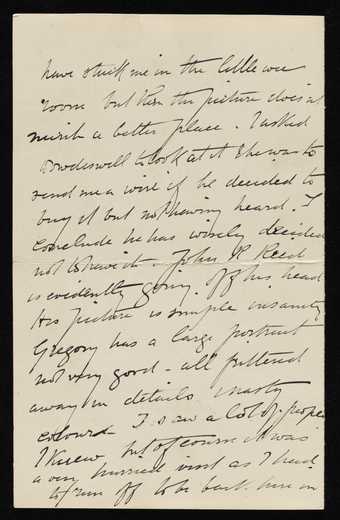 have stuck me in the little wee
room but then the picture does not
merit a better place. I asked
Dowdeswell to look at it & he was to
send me a wire if he decided to
buy it but not having heard. I
conclude he has wisely decided
not to have it. John R Reid
is evidently going off his head
His picture is simple insanity
Gregory has a large portrait
not very good – all frittered
away in details & nasty
colour – I saw a lot of people
I knew but of course it was
a very hurried visit as I had
to run off to be back here in